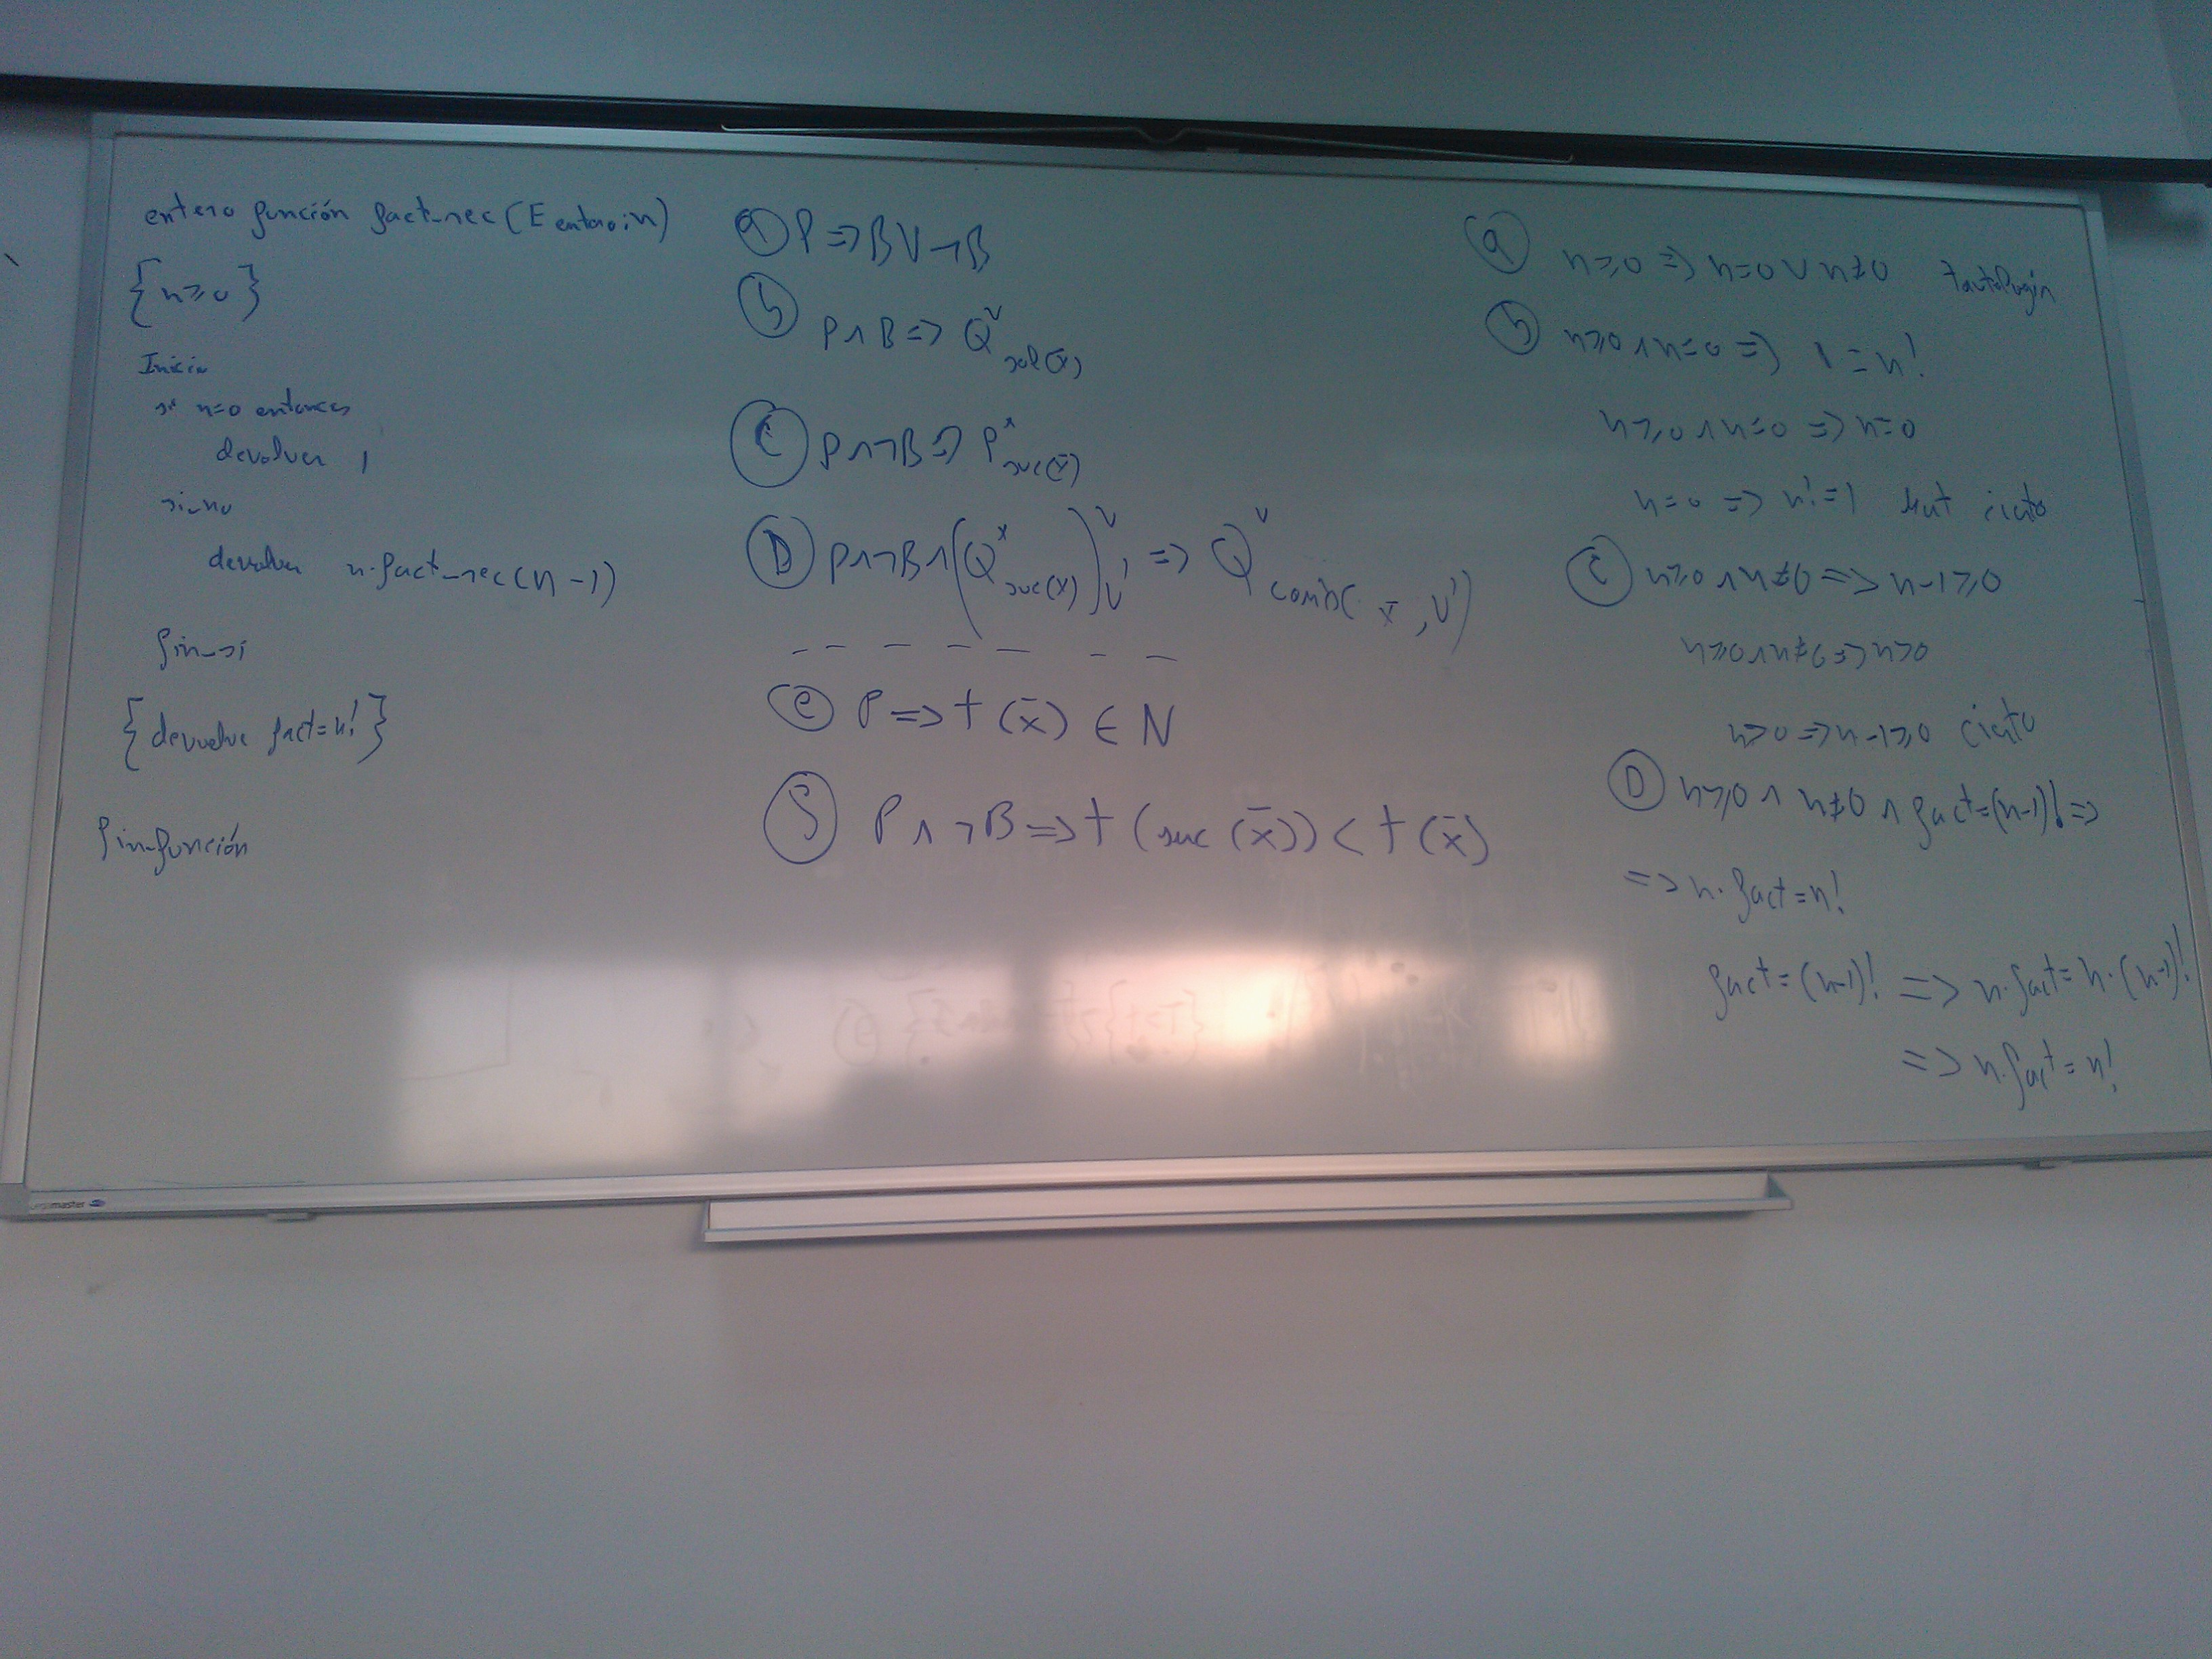 entero función fact_rec(E entero:n)
{n≥0}
Inicio
si n=0 entonces
devolver 1
si_no
devolver n·fact_rec(n-1)
fin_si
{devuelve fact=n!}
fin_función
a P => B ∨ ¬B
b P ∧ B => Q^v_sol(x̄)
c P ∧ ¬B => P^x_suc(x̄)
D P ∧ ¬B ∧ (Q^x_suc(x))^v_v' => Q^v_comb(x̄, v')
e P => t(x̄) ∈ N
f P ∧ ¬B => t(suc(x̄)) < t(x̄)
a n≥0 => n=0 ∨ n≠0 tautología
b n≥0 ∧ n=0 => 1=n!
n≥0 ∧ n=0 => n=0
n=0 => n!=1 cierto
c n≥0 ∧ n≠0 => n-1≥0
n≥0 ∧ n≠0 => n>0
n>0 => n-1≥0 cierto
D n≥0 ∧ n≠0 ∧ fact=(n-1)! =>
=> n·fact=n!
fact=(n-1)! => n·fact=n·(n-1)!
=> n·fact=n!
master